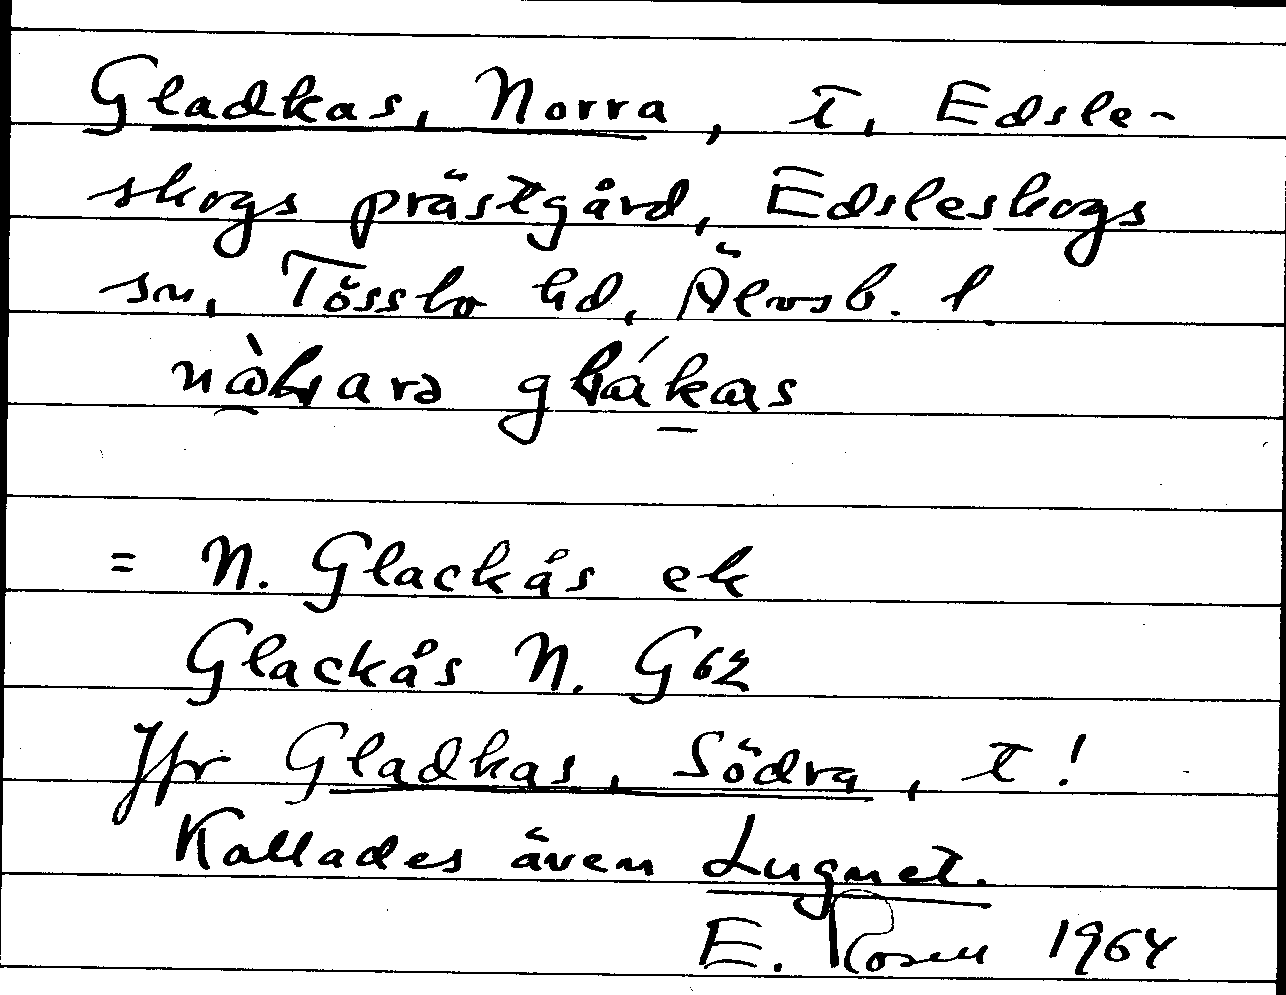 Gladkas, Norra, t, Edsle-
skogs prästgård, Edsleskogs
sn, Tössbo hd, Älvsb. l.
glákas
= N. Glackås ek
Glackås N. G62
Jfr Gladkas, Södra, t!
Kallades även Lugnet.
E. Rosell 1964